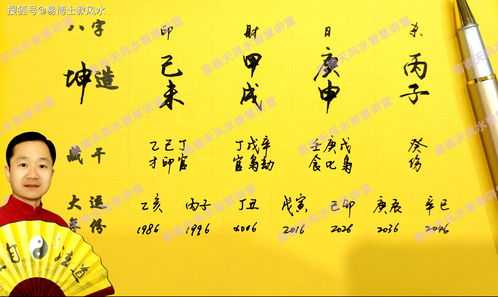 搜狐号@易博士教风水
八字 印 财 日 杀
坤造 己未 甲戌 庚申 丙子
藏干 乙己丁 丁戊辛 壬庚戊 癸
才印官 官枭劫 食比枭 伤
大运 乙亥 丙子 丁丑 戊寅 己卯 庚辰 辛巳
年份 1986 1996 2006 2016 2026 2036 2046